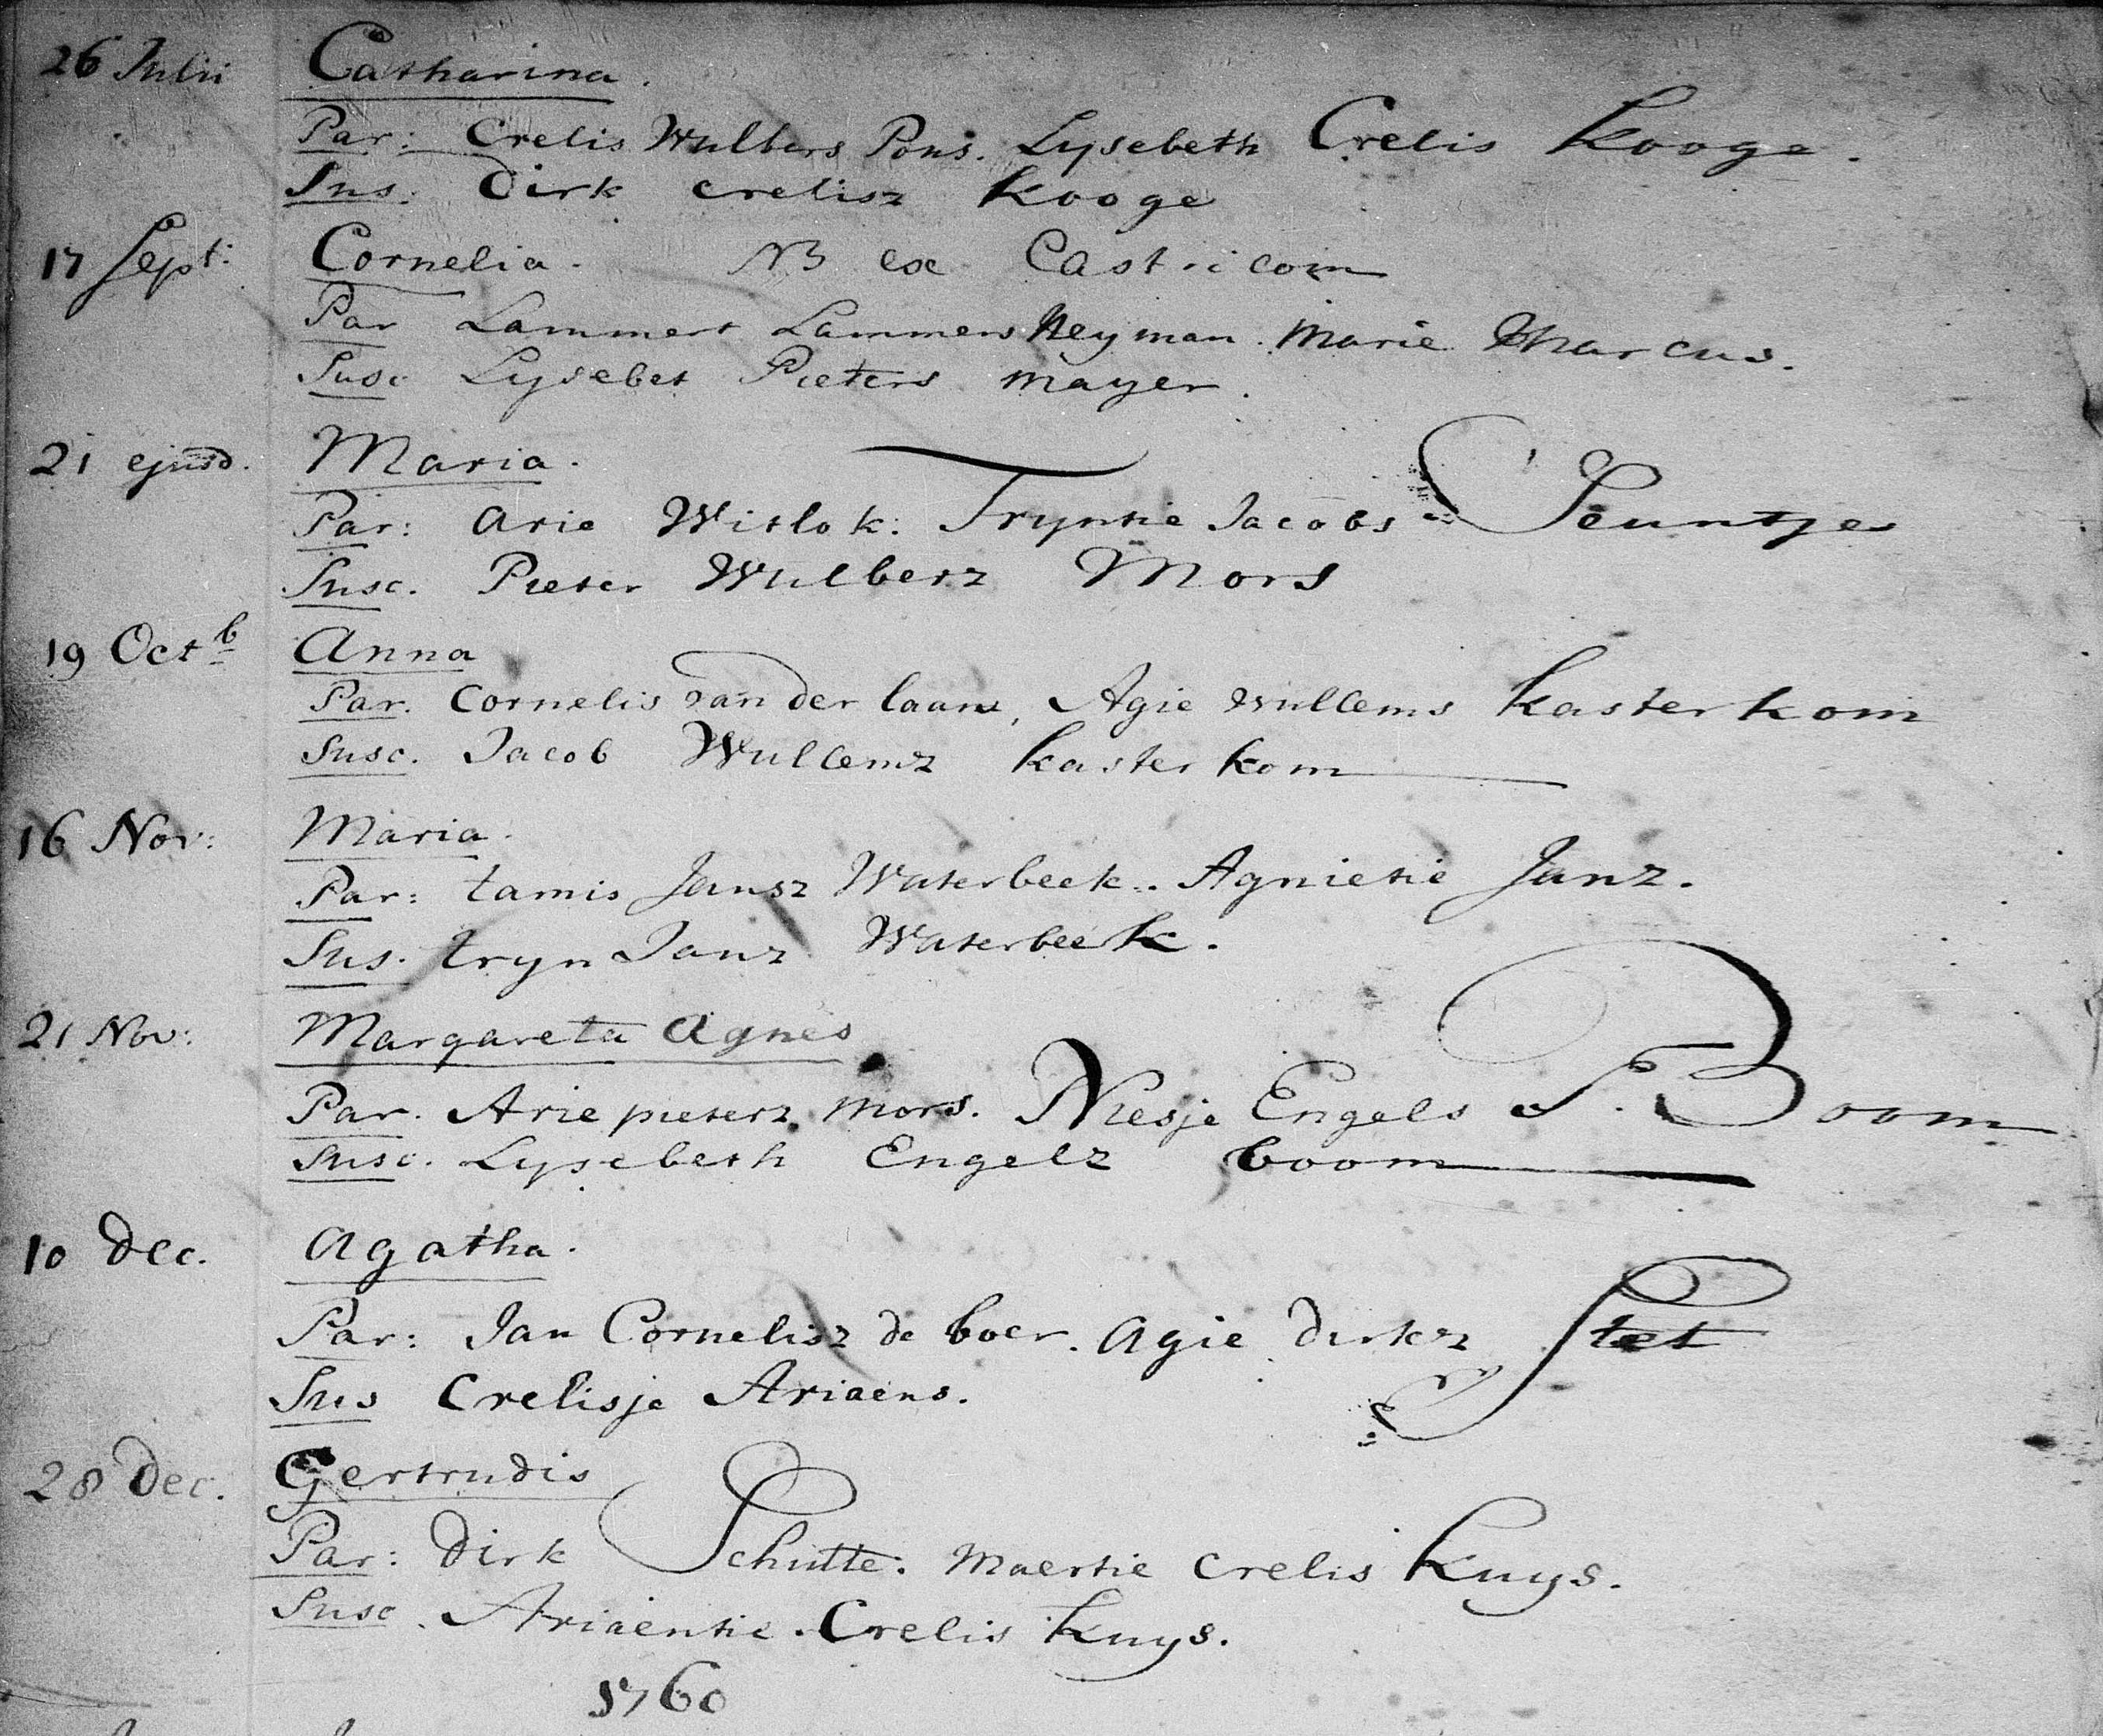 26 Julii Catharina.
Par: Crelis Wulbers Pons. Lysebeth Crelis Kooge.
Sus. Dirk Crelisz Kooge
17 Sept: Cornelia. NB ex Castricom
Par Lammert Lammers Neyman. Marie Marcus.
Susc Lysebet Pieters Mayer.
21 ejusd. Maria.
Par: Arie Witlok. Tryntie Jacobs Seuntjes
Susc. Pieter Wulberz Mors
19 Octb Anna
Par. Cornelis van der laan, Agie Willems Kasterkom
Susc. Jacob Willemz Kasterkom
16 Nov: Maria.
Par: tamis Jansz Waterbeek. Agnietie Janz.
Sus. tryn Janz Waterbeek.
21 Nov: Margareta Agnes
Par. Arie pieterz Mors. Niesje Engels S. Boom
Susc. Lysebeth Engelz boom
10 Dec. Agatha.
Par: Jan Cornelisz de boer. Agie dirkz Stet
Sus Crelisje Ariaens.
28 Dec. Gertrudis
Par: Dirk Schutte. Maertie Crelis Kuys.
Susc. Ariaentie Crelis Kuys.
1760